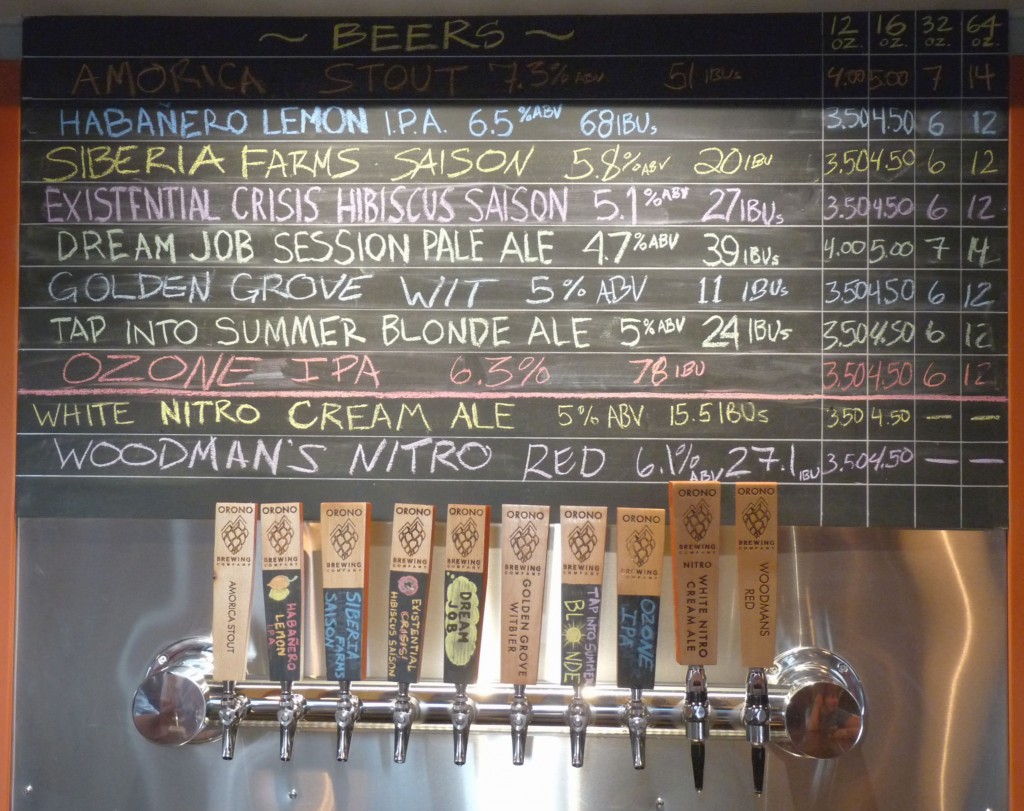 ~ BEERS ~ 12 OZ. 16 OZ. 32 OZ. 64 OZ.
AMORICA STOUT 7.3% ABV 51 IBUs 4.00 5.00 7 14
HABAÑERO LEMON I.P.A. 6.5 % ABV 68 IBUs 3.50 4.50 6 12
SIBERIA FARMS SAISON 5.8% ABV 20 IBU 3.50 4.50 6 12
EXISTENTIAL CRISIS HIBISCUS SAISON 5.1% ABV 27 IBUs 3.50 4.50 6 12
DREAM JOB SESSION PALE ALE 4.7% ABV 39 IBUs 4.00 5.00 7 14
GOLDEN GROVE WIT 5% ABV 11 IBUs 3.50 4.50 6 12
TAP INTO SUMMER BLONDE ALE 5% ABV 24 IBUs 3.50 4.50 6 12
OZONE IPA 6.3% 78 IBU 3.50 4.50 6 12
WHITE NITRO CREAM ALE 5% ABV 15.5 IBUs 3.50 4.50 — —
WOODMAN'S NITRO RED 6.1% ABV 27.1 IBU 3.50 4.50 — —
ORONO
BREWING
COMPANY
AMORICA STOUT
ORONO
BREWING
COMPANY
HABAÑERO
LEMON
IPA
ORONO
BREWING
COMPANY
SIBERIA
FARMS
SAISON
ORONO
BREWING
COMPANY
EXISTENTIAL
CRISIS
HIBISCUS SAISON
ORONO
BREWING
COMPANY
DREAM
JOB
ORONO
BREWING
COMPANY
GOLDEN GROVE
WITBIER
ORONO
BREWING
COMPANY
TAP INTO SUMMER
BLONDE
ORONO
BREWING
COMPANY
OZONE
IPA
ORONO
BREWING
COMPANY
NITRO
WHITE NITRO
CREAM ALE
ORONO
BREWING
COMPANY
WOODMANS
RED